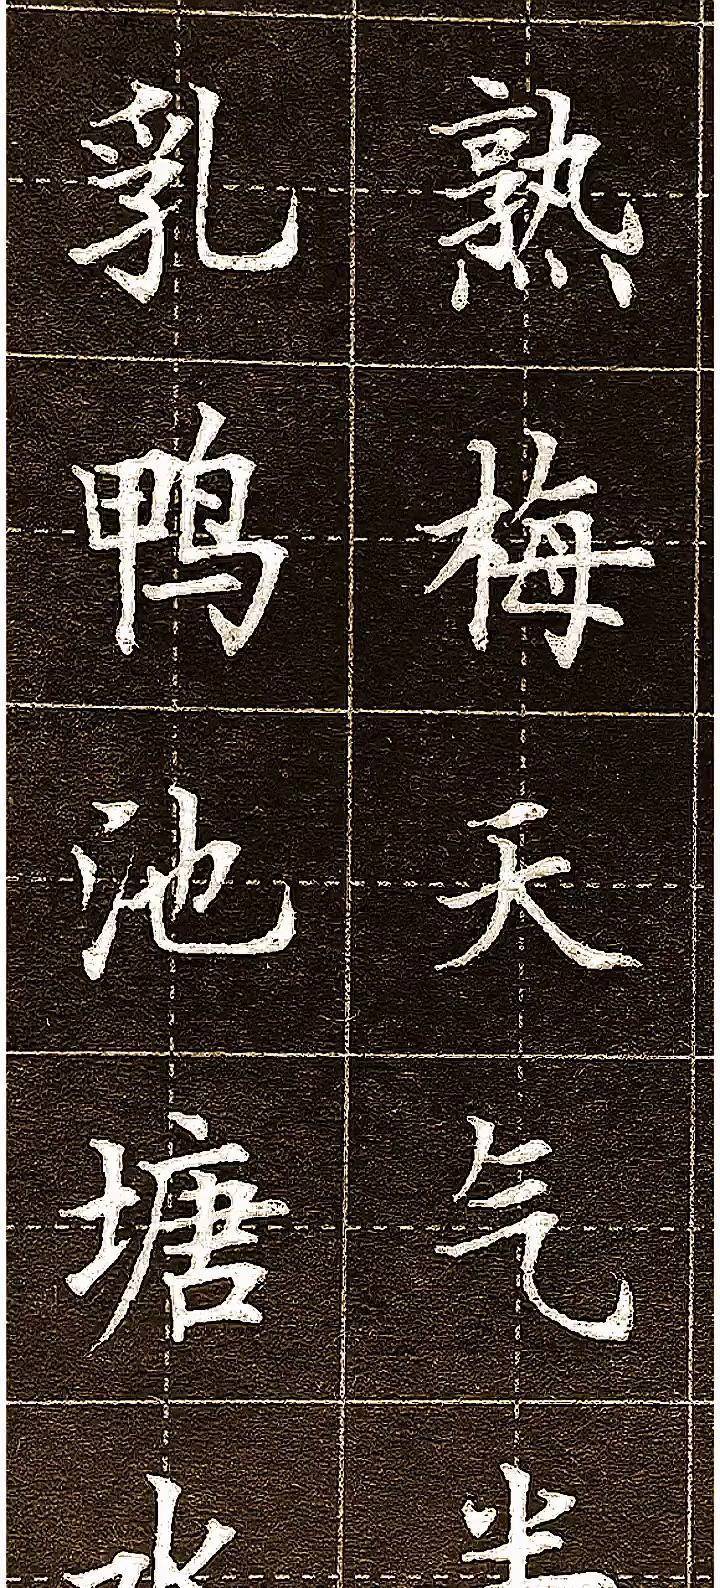 乳鸭池塘水
熟梅天气半